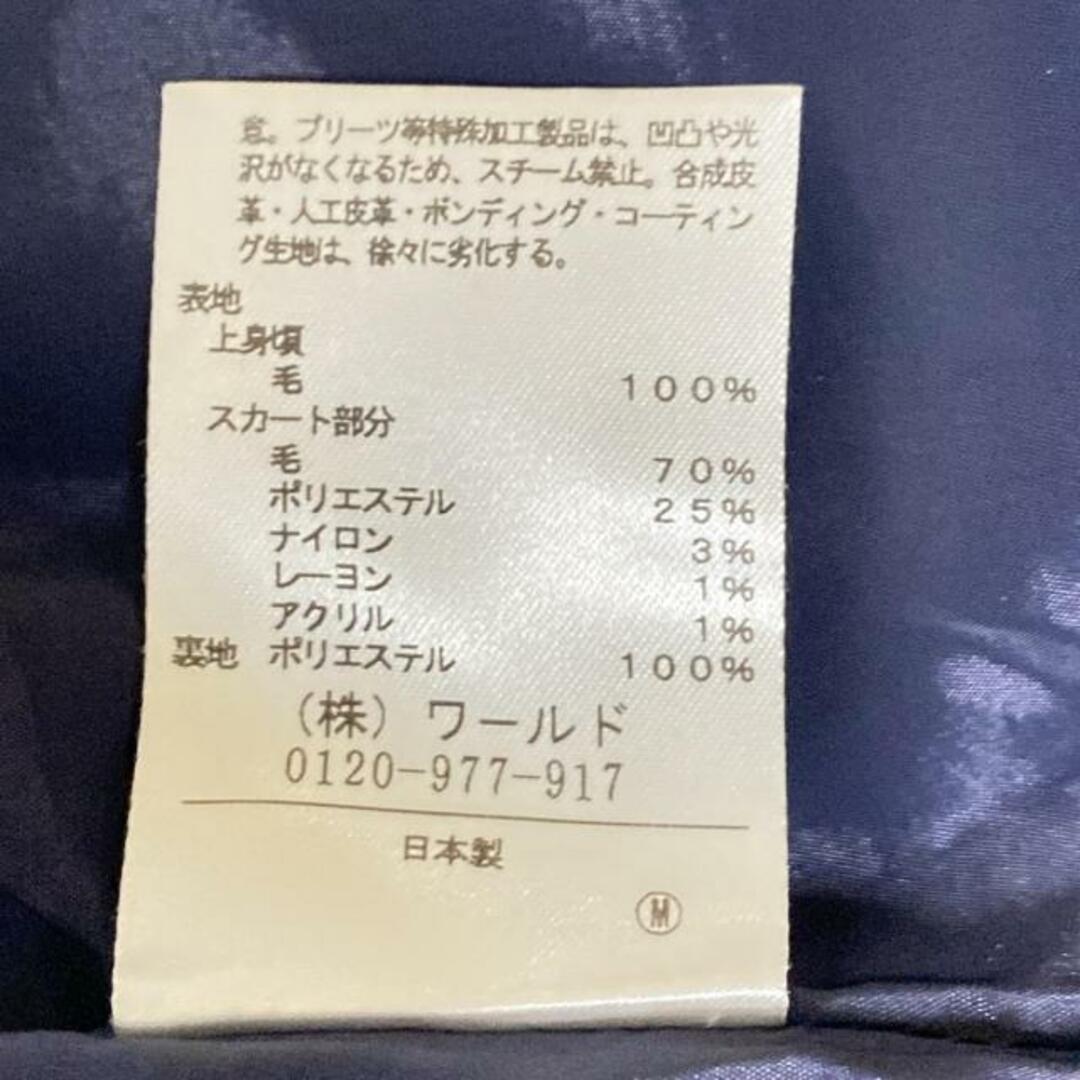 意。プリーツ等特殊加工製品は、凹凸や光
沢がなくなるため、スチーム禁止。合成皮
革・人工皮革・ボンディング・コーティン
グ生地は、徐々に劣化する。
表地
上身頃
毛 100%
スカート部分
毛 70%
ポリエステル 25%
ナイロン 3%
レーヨン 1%
アクリル 1%
裏地 ポリエステル 100%
(株) ワールド
0120-977-917
日本製
M